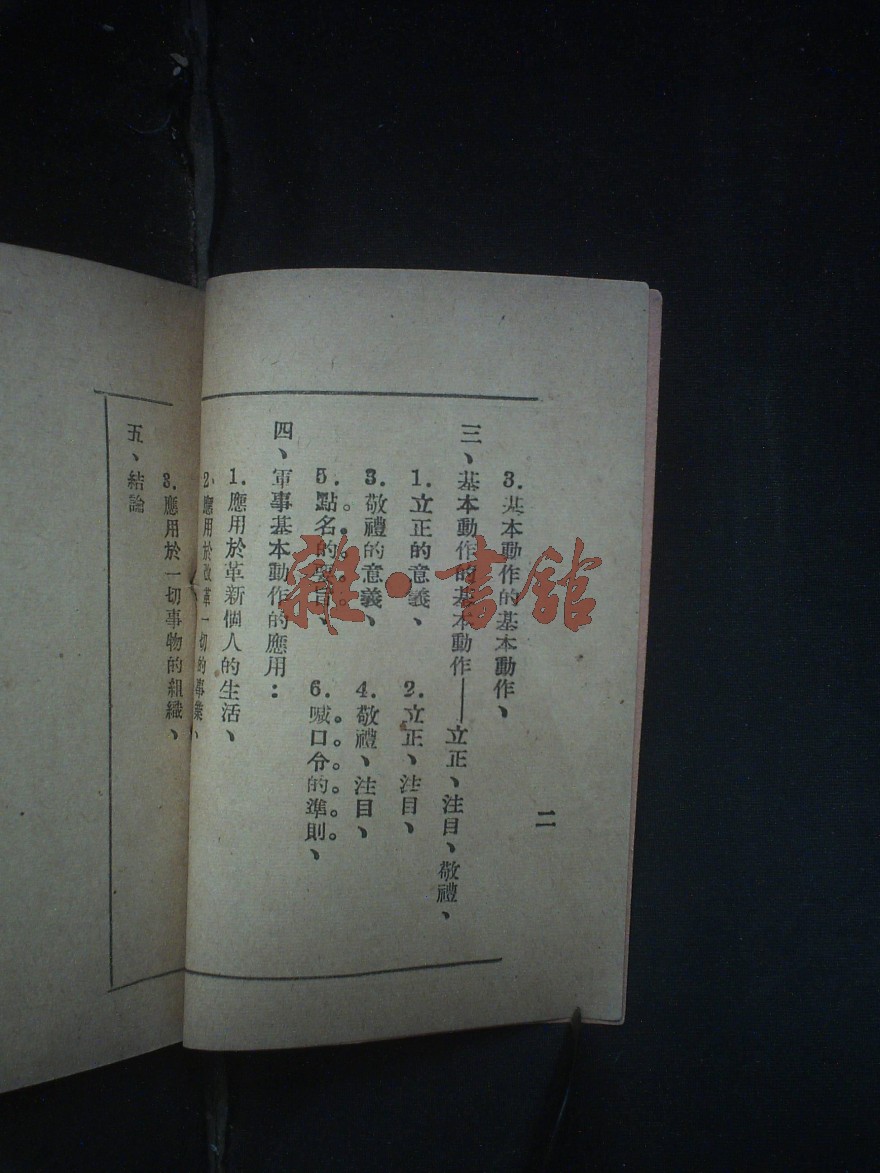 二
3.基本動作的基本動作、
三、基本動作的基本動作——立正、注目、敬禮、
1.立正的意義、 2.立正、注目、
3.敬禮的意義、 4.敬禮、注目、
5.點名的要旨、 6.喊口令的準則、
四、軍事基本動作的應用：
1.應用於革新個人的生活、
2.應用於改革一切的事業、
3.應用於一切事物的組織、
五、結論
雜·書館